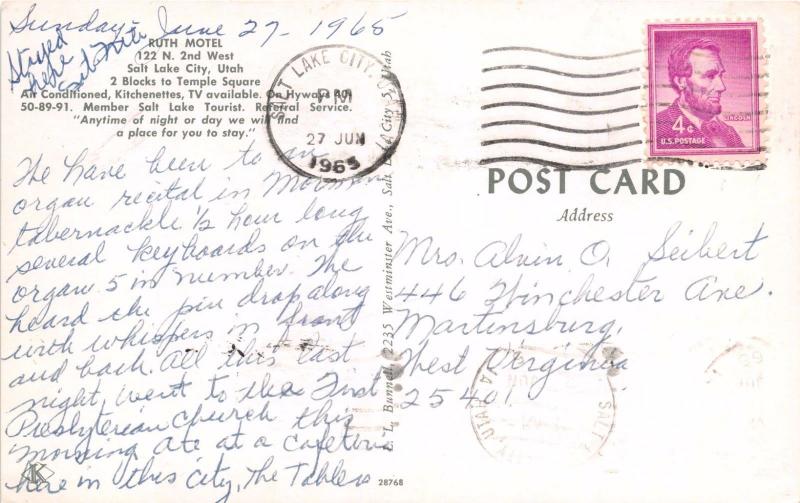 Sunday - June 27 - 1965
Stayed
here
Sat. Nite
RUTH MOTEL
122 N. 2nd West
Salt Lake City, Utah
2 Blocks to Temple Square
Air Conditioned, Kitchenettes, TV available. On Hyways 40-
50-89-91. Member Salt Lake Tourist. Referral Service.
"Anytime of night or day we will find
a place for you to stay."
We have been to an
organ recital in Mormon
tabernackle ½ hour long
several keyboards on the
organ 5 in number. We
heard the pin drop along
with whispers in front
and back. All this last
night, went to the First
Presbyterian church this
morning ate at a cafeteria
here in this city, The Tables
SALT LAKE CITY, UTAH
PM
27 JUN
1965
E. L. Bunnell, 2235 Westminster Ave., Salt Lake City 5, Utah
LINCOLN
4¢
U.S. POSTAGE
POST CARD
Address
Mrs. Alvin O. Seibert
446 Winchester Ave.
Martinsburg,
West Virginia
25401
SALT
UTAH
K
28768